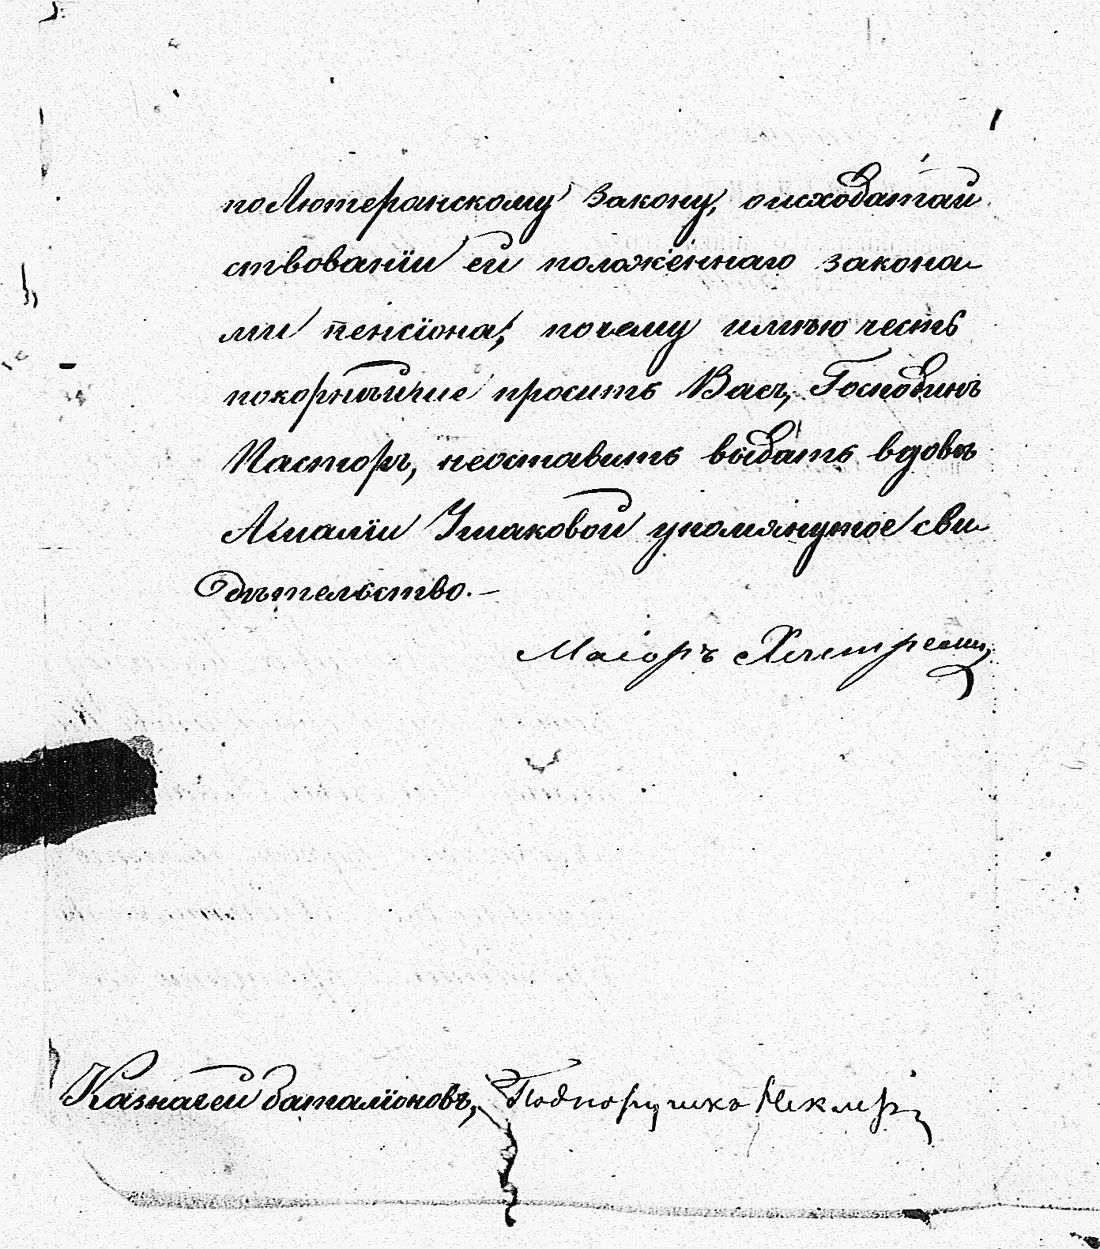 по Лютеранскому закону, о исходатай
ствованіи ей положеннаго закона-
ми пенсіона; почему имѣю честь
покорнѣйше просить Васъ, Господинъ
Пасторъ, неоставить выдать вдовѣ
Амаліи Ушаковой упомянутое сви-
дѣтельство.-
Маіоръ
Казначей баталіоновъ, Подпоручикъ